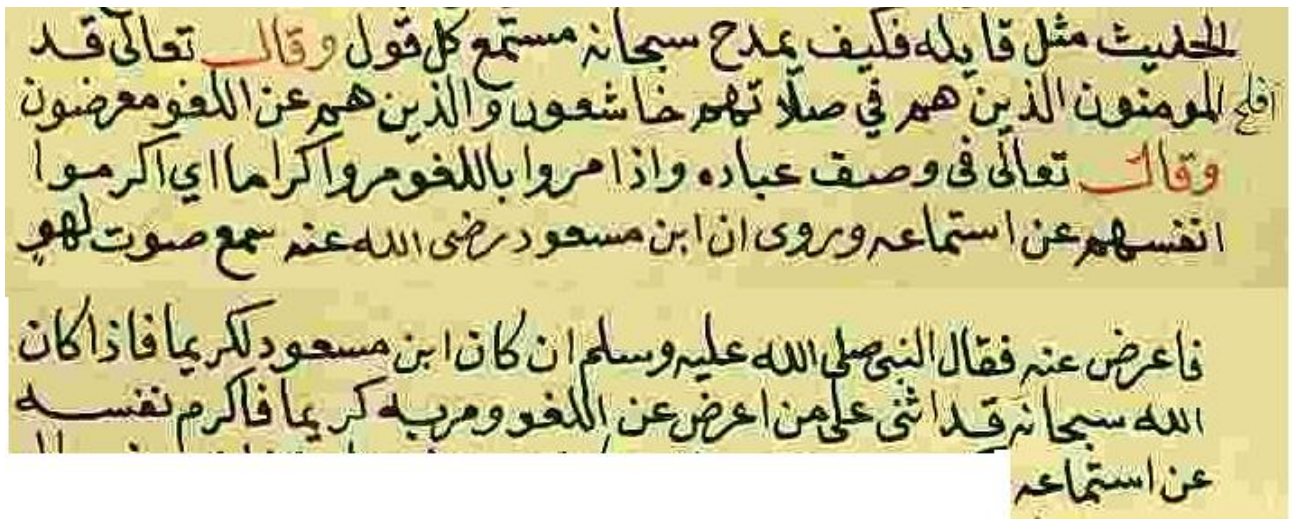 الحديث مثل قايله فكيف يمدح سبحانه مستمع كل قول وقال تعالى قد
افلح المومنون الذين هم في صلاتهم خاشعون والذين هم عن اللغو معرضون
وقال تعالى فى وصف عباده واذا مروا باللغو مروا كراما اي اكرموا
انفسهم عن استماعه وروى ان ابن مسعود رضى الله عنه سمع صوت لهو
فاعرض عنه فقال النبي صلى الله عليه وسلم ان كان ابن مسعود لكريما فاذا كان
الله سبحانه قد اثنى على من اعرض عن اللغو ومر به كريما فاكرم نفسه
عن استماعه